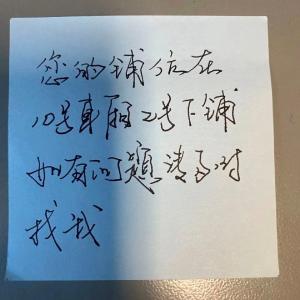 您的铺位在
10号车厢2号下铺
如有问题请及时
找我